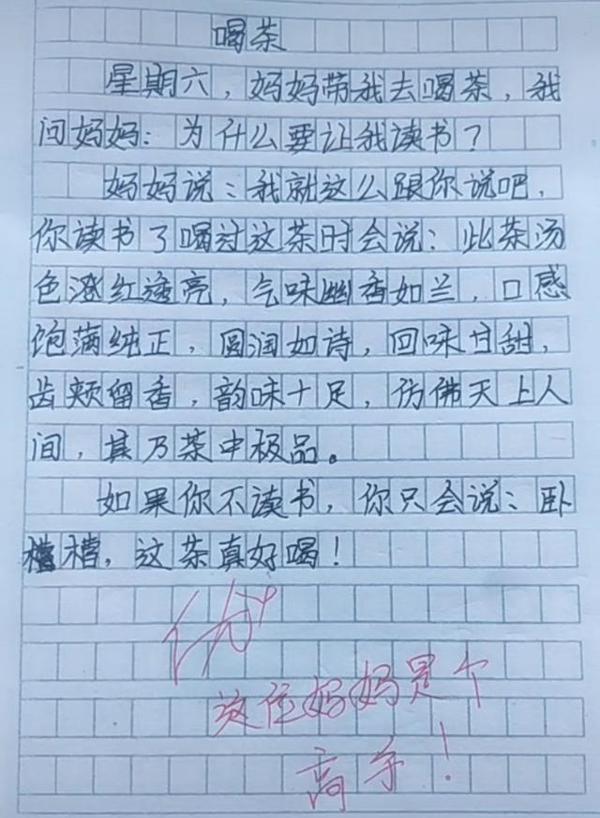 喝茶
星期六，妈妈带我去喝茶，我
问妈妈：为什么要让我读书？
妈妈说：我就这么跟你说吧，
你读书了喝过这茶时会说：此茶汤
色澄红透亮，气味幽香如兰，口感
饱满纯正，圆润如诗，回味甘甜，
齿颊留香，韵味十足，仿佛天上人
间，其乃茶中极品。
如果你不读书，你只会说：卧
槽，这茶真好喝！
优
这位妈妈是个
高手！